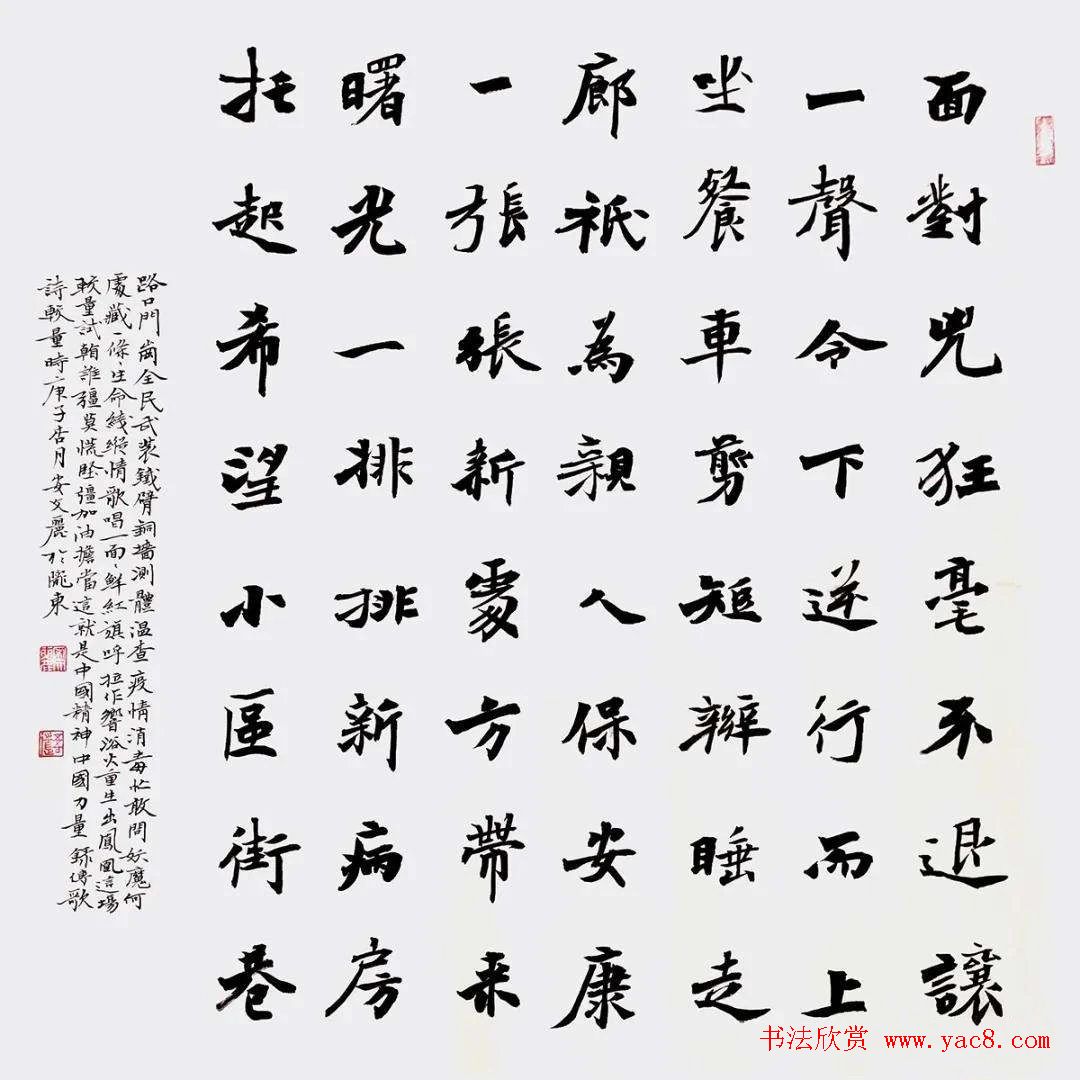 面對兇狂毫不退讓
一聲令下逆行而上
坐餐車剪短辮睡走
廊祇為親人保安康
一張張新處方帶來
曙光一排排新病房
托起希望小區街巷
路口門崗全民武裝鐵臂銅墻測體溫查疫情消毒忙敢問妖魔何
處藏一條〻生命綫縱情歌唱一面〻鮮紅旗呼拉作響浴火重生出鳳凰這場
較量試看誰彊莫慌堅彊加油擔當這就是中國精神中國力量錄傳歌
詩較量時庚子杏月安文麗於隴東
书法欣赏 www.yac8.com